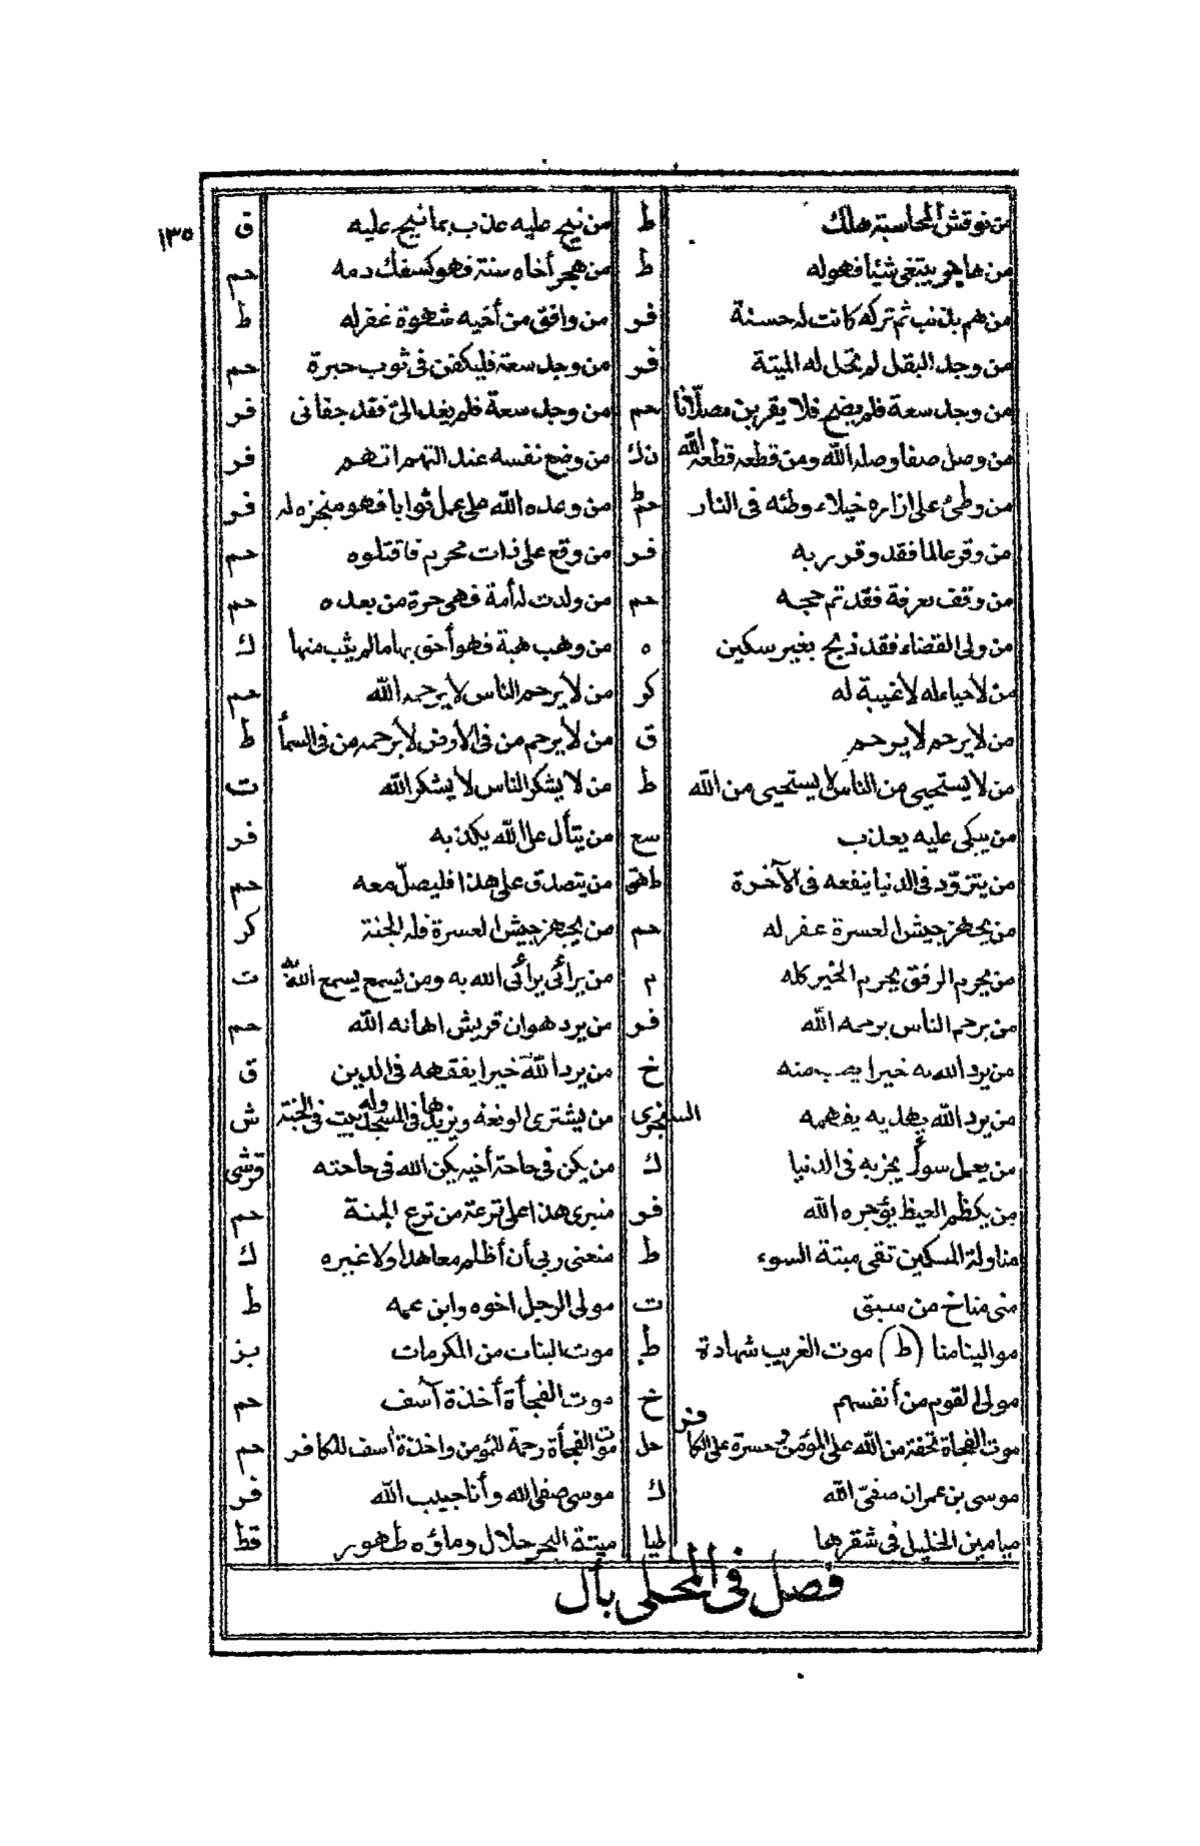 ١٣٥
من نوقش المحاسبة هلك ط من نيح عليه عذب بما نيح عليه ق
من هاجر يبتغي شيئا فهو له ط من هجر أخاه سنة فهو كسفك دمه حم
من هم بذنب ثم تركه كانت له حسنة فر من وافق من أخيه شهوة غفر له ط
من وجد البقل لم تحل له الميتة فر من وجد سعة فليكفن في ثوب حبرة حم
من وجد سعة فلم يضح فلا يقربن مصلانا حم من وجد سعة فلم يغد الىّ فقد جفانى فر
من وصل صفا وصله الله ومن قطعه قطعه الله ن ك من وضع نفسه عند التهم اتهم فر
من وطئ على ازاره خيلاء وطئه فى النار حم من وعده الله على عمل ثوابا فهو منجزه له فر
من وقر عالما فقد وقر ربه فر من وقع على ذات محرم فاقتلوه حم
من وقف بعرفة فقد تم حجه حم من ولدت له أمة فهى حرة من بعده حم
من ولى القضاء فقد ذبح بغير سكين ه من وهب هبة فهو أحق بها مالم يثب منها ك
من لا حياء له لا غيبة له كر من لا يرحم الناس لا يرحمه الله حم
من لا يرحم لا يرحم ق من لا يرحم من فى الأرض لا يرحمه من فى السمأ ط
من لا يستحيى من الناس لا يستحيى من الله ط من لا يشكر الناس لا يشكر الله ت
من يبكى عليه يعذب سع من يتأل على الله يكذبه فر
من يتزوّد فى الدنيا ينفعه فى الآخرة طهق من يتصدق على هذا فليصلّ معه حم
من يجهز جيش العسرة غفر له حم من يجهز جيش العسرة فله الجنة كر
من يحرم الرفق يحرم الخير كله م من يرائى يرائى الله به ومن يسمع يسمع الله به ت
من يرحم الناس يرحمه الله فر من يرد هوان قريش اهانه الله حم
من يرد الله به خيرا يصب منه خ من يرد الله خيرا يفقهه فى الدين ق
من يرد الله يهديه يفهمه السجزى من يشترى لو بقعة ويزيدها فى المسجد وله بيت فى الجنة ش
من يعمل سوأ يجز به فى الدنيا ك من يكن فى حاجة أخيه يكن الله فى حاجته
من يكظم الغيظ يؤجره الله فر منبرى هذا على ترعة من ترع الجنة حم
مناولة المسكين تقى ميتة السوء ط منعنى ربى أن أظلم معاهدا ولا غيره ك
منى مناخ من سبق ت مولى الرجل اخوه وابن عمه ط
موالينا منا (ط) موت الغريب شهادة ط موت البنات من المكرمات بز
مولى القوم من أنفسهم خ موت الفجأة أخذة آسف حم
موت الفجأة تحفة من الله على المؤمن وحسرة على الكافر حل موت الفجأة رحمة للمؤمن واخذة أسف للكافر حم
موسى بن عمران صفىّ الله ك موسى صفى الله وأنا حبيب الله فر
ميامين الخيل فى شقرها طيا ميتة البحر حلال وماؤه طهور قط
فصل فى المحلى بأل